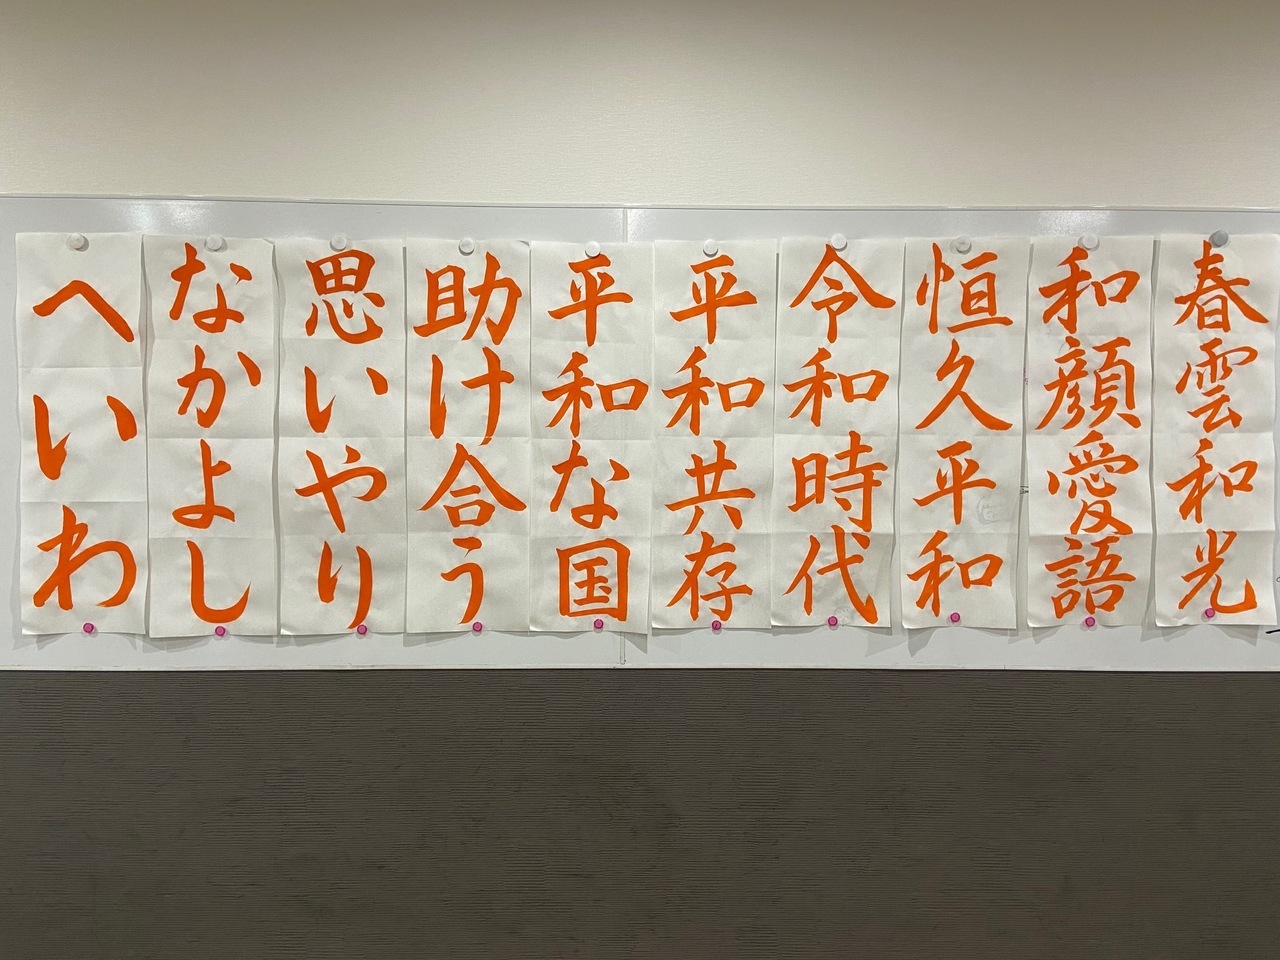 春雲和光
和顔愛語
恒久平和
令和時代
平和共存
平和な国
助け合う
思いやり
なかよし
へいわ